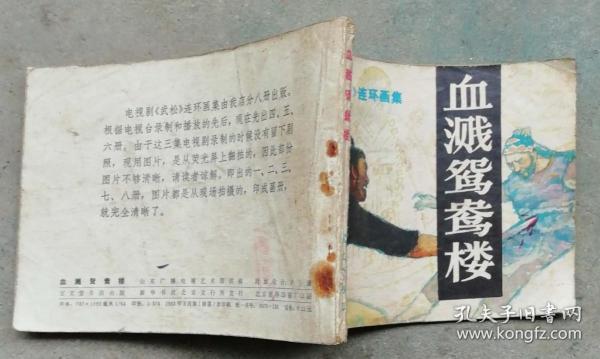 电视剧《武松》连环画集由我店分八册出版。
根据电视台录制和播放的先后，现在先出四、五、
六册。由于这三集电视剧录制的时候没有留下剧
照，现用图片，是从荧光屏上翻拍的，因此部分
图片不够清晰，请读者谅解。即出的一、二、三、
七、八册，图片都是从现场拍摄的，印成画册，
就完全清晰了。
血溅鸳鸯楼
血溅鸳鸯楼
》连环画集
血溅鸳鸯楼
孔夫子旧书网
KONGFZ.COM